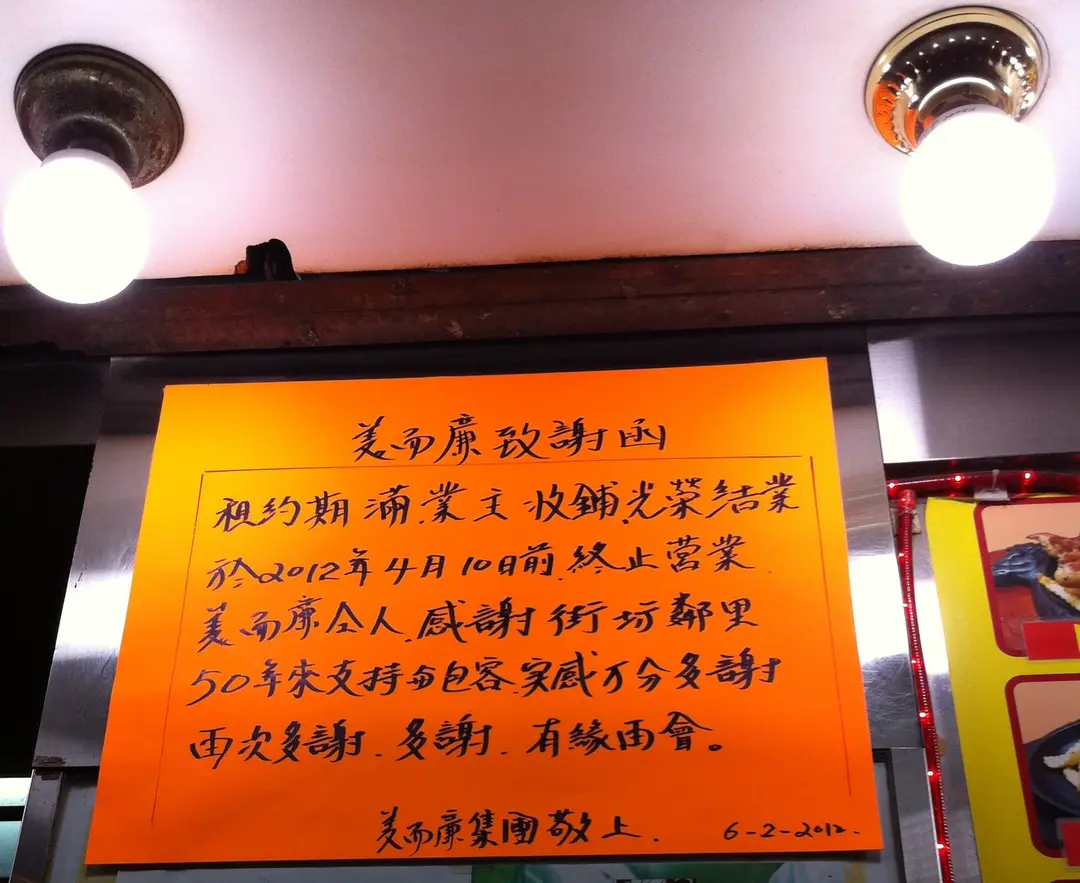 美而廉致謝函
租約期滿.業主收鋪.光榮結業
於2012年4月10日前.終止營業.
美而廉仝人.感謝街坊鄰里
50年來支持与包容.实感万分多謝
再次多謝.多謝.有緣再會。
美而廉集團敬上.
6-2-2012.